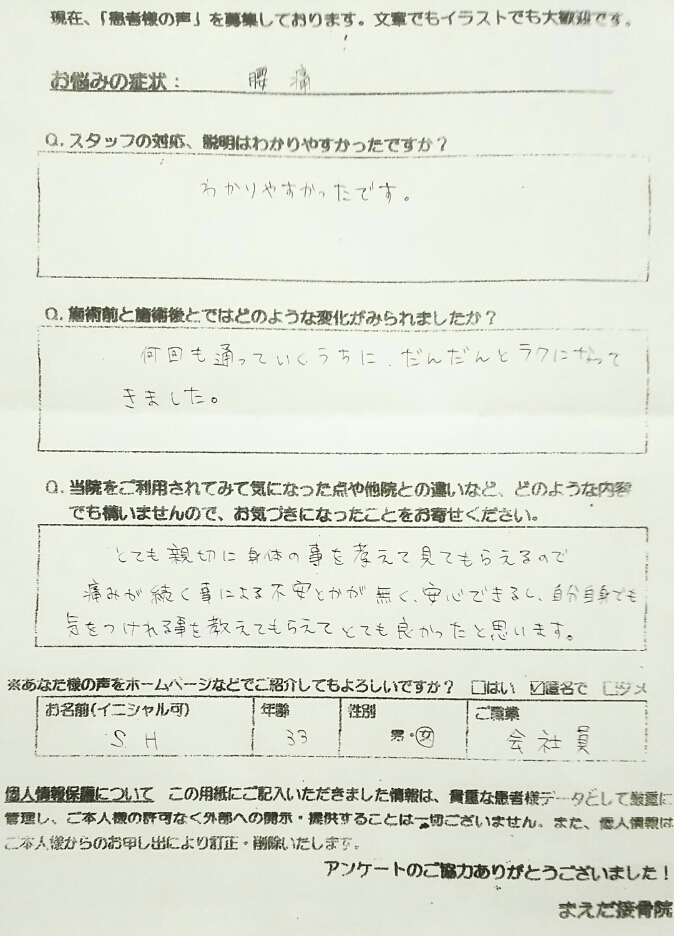 現在、「患者様の声」を募集しております。文章でもイラストでも大歓迎です。
お悩みの症状: 腰痛
Q.スタッフの対応、説明はわかりやすかったですか?
わかりやすかったです。
Q.施術前と施術後とではどのような変化がみられましたか?
何回も通っていくうちに、だんだんとラクになって
きました。
Q.当院をご利用されてみて気になった点や他院との違いなど、どのような内容
でも構いませんので、お気づきになったことをお寄せください。
とても親切に身体の事を考えて見てもらえるので
痛みが続く事による不安とかが無く、安心できるし、自分自身でも
気をつけれる事を教えてもらえてとても良かったと思います。
※あなた様の声をホームページなどでご紹介してもよろしいですか? □はい ☑匿名で □ダメ
お名前(イニシャル可) 年齢 性別 ご職業
S H 33 男・女 会社員
個人情報保護について この用紙にご記入いただきました情報は、貴重な患者様データとして厳重に
管理し、ご本人様の許可なく外部への開示・提供することは一切ございません。また、個人情報は
ご本人様からのお申し出により訂正・削除いたします。
アンケートのご協力ありがとうございました!
まえだ接骨院